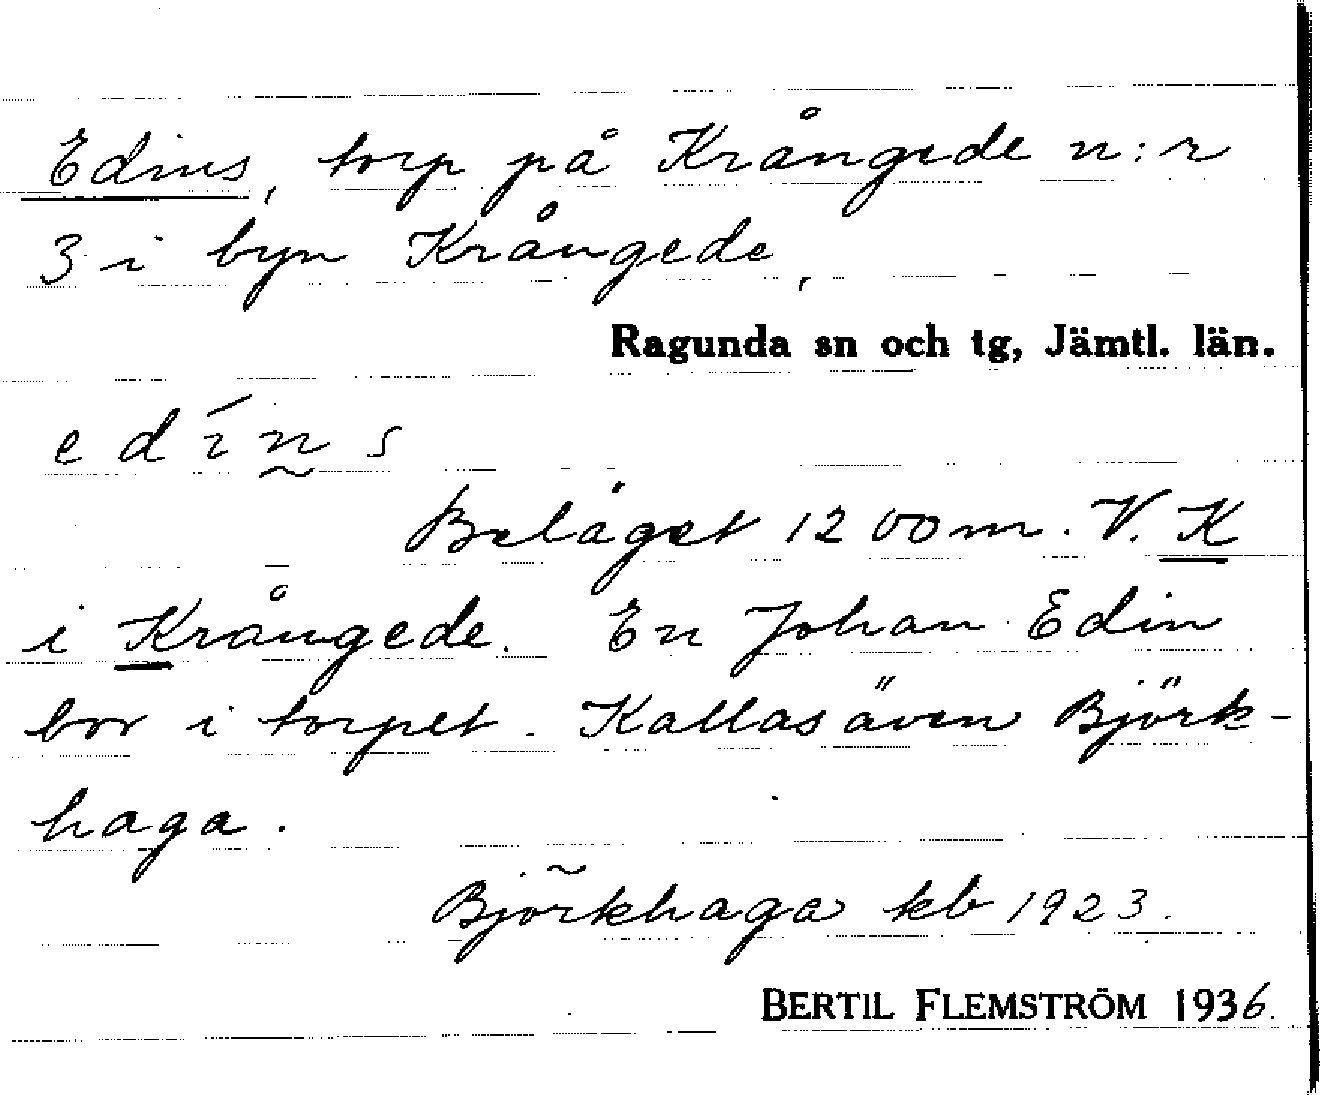 Edins, torp på Krångede n:r
3 i byn Krångede,
Ragunda sn och tg, Jämtl. län.
edíns
Beläget 1200 m. V. K
i Krångede. En Johan Edin
bor i torpet. Kallas även Björk-
haga.
Björkhaga kb 1923.
BERTIL FLEMSTRÖM 1936.